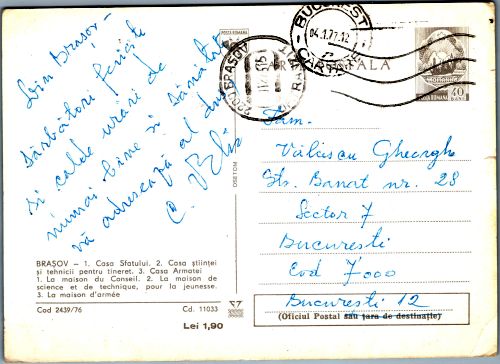 Din Brașov –
Sărbători fericite
și calde urări de
numai bine și sănătate
vă adresează al dvs
C.
BRAȘOV – 1. Casa Sfatului. 2. Casa științei
și tehnicii pentru tineret. 3. Casa Armatei
1. La maison du Conseil. 2. La maison de
science et de technique, pour la jeunesse.
3. La maison d'armée
Cod 2439/76 Cd. 11033
Lei 1,90
DSBTOM
POSTA ROMANA
2200 BRASOV
BUCURESTI
04.1.77.12
CARTARE
POSTALA
POSTA ROMANA
40
BANI
Fam.
Vâlcescu Gheorghe
Str. Banat nr. 28
Sector 7
București
Cod 7000
București 12
(Oficiul Postal sau țara de destinație)